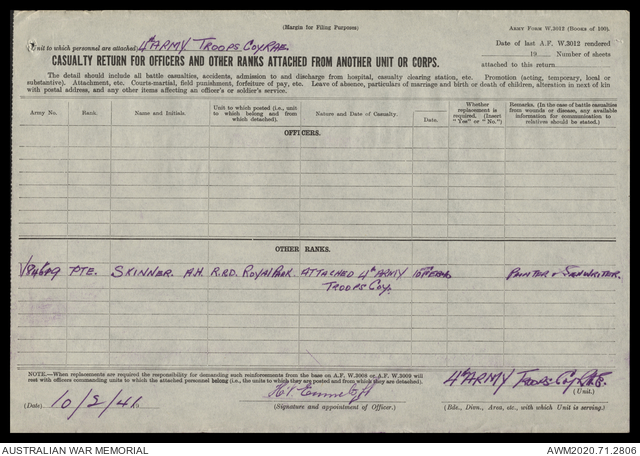 (Margin for Filing Purposes)
ARMY FORM W.3012 (BOOKS OF 100).
(Unit to which personnel are attached) 4th ARMY TROOPS COY RAE
Date of last A.F. W.3012 rendered
19 Number of sheets
attached to this return
CASUALTY RETURN FOR OFFICERS AND OTHER RANKS ATTACHED FROM ANOTHER UNIT OR CORPS.
The detail should include all battle casualties, accidents, admission to and discharge from hospital, casualty clearing station, etc. Promotion (acting, temporary, local or
substantive). Attachment, etc. Courts-martial, field punishment, forfeiture of pay, etc. Leave of absence, particulars of marriage and birth or death of children, alteration in next of kin
with postal address, and any other items affecting an officer's or soldier's service.
Army No.
Rank.
Name and Initials.
Unit to which posted (i.e., unit
to which belong and from
which detached).
Nature and Date of Casualty.
Date.
Whether
replacement is
required. (Insert
"Yes" or "No.")
Remarks, (In the case of battle casualties
from wounds or disease, any available
information for communication to
relatives should be stated.)
OFFICERS.
OTHER RANKS.
PTE. SKINNER A.H. R.R.D. ROYAL PARK. ATTACHED 4th ARMY
TROOPS COY.
NOTE.—When replacements are required the responsibility for demanding such reinforcements from the base on A.F. W.3008 or A.F. W.3009 will
rest with officers commanding units to which the attached personnel belong (i.e., the units to which they are posted and from which they are detached).
4th ARMY TROOPS COY R.A.E.
(Unit.)
(Date) 10/2/41
(Signature and appointment of Officer.)
(Bde., Divn., Area, etc., with which Unit is serving.)
AUSTRALIAN WAR MEMORIAL
AWM2020.71.2806